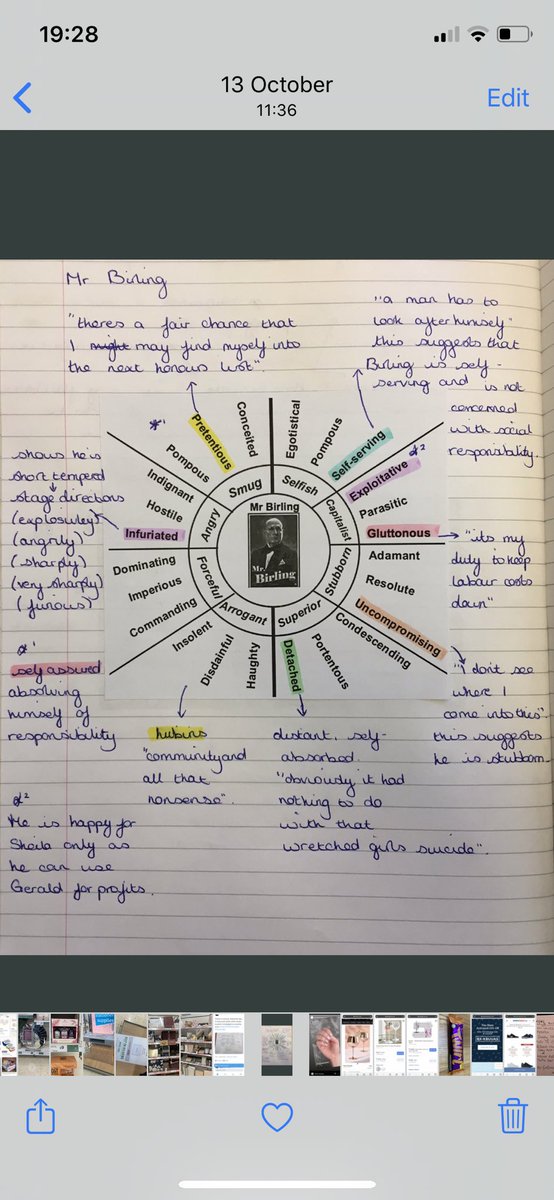 19:28
13 October
11:36
Edit
Mr Birling
"theres a fair chance that
I might may find myself into
the next honours list".
"a man has to
look after himself"
this suggests that
Birling is self-
serving and is not
concerned
with social
responsibility.
*1
Pompous
Pretentious
Conceited
Egotistical
Pompous
Self-serving
*2
Exploitative
Parasitic
Gluttonous
Adamant
Resolute
Uncompromising
Condescending
Portentous
Detached
Haughty
Disdainful
Insolent
Commanding
Imperious
Dominating
Infuriated
Hostile
Indignant
Smug
Selfish
Capitalist
Stubborn
Superior
Arrogant
Forceful
Angry
Mr Birling
Mr.
Birling
shows he is
short temperd
stage directions
(explosuley)
(angrily)
(sharply)
(very sharply)
(furious)
"its my
duty to keep
labour costs
down"
*1
self assured
absolving
himself of
responsibility
hubris
"community and
all that
nonsense".
distant, self-
absorbed.
"obviously it had
nothing to do
with that
wretched girls suicide".
"I dont see
where I
come into this"
this suggests
he is stubborn.
*2
He is happy for
Sheila only as
he can use
Gerald for profits.